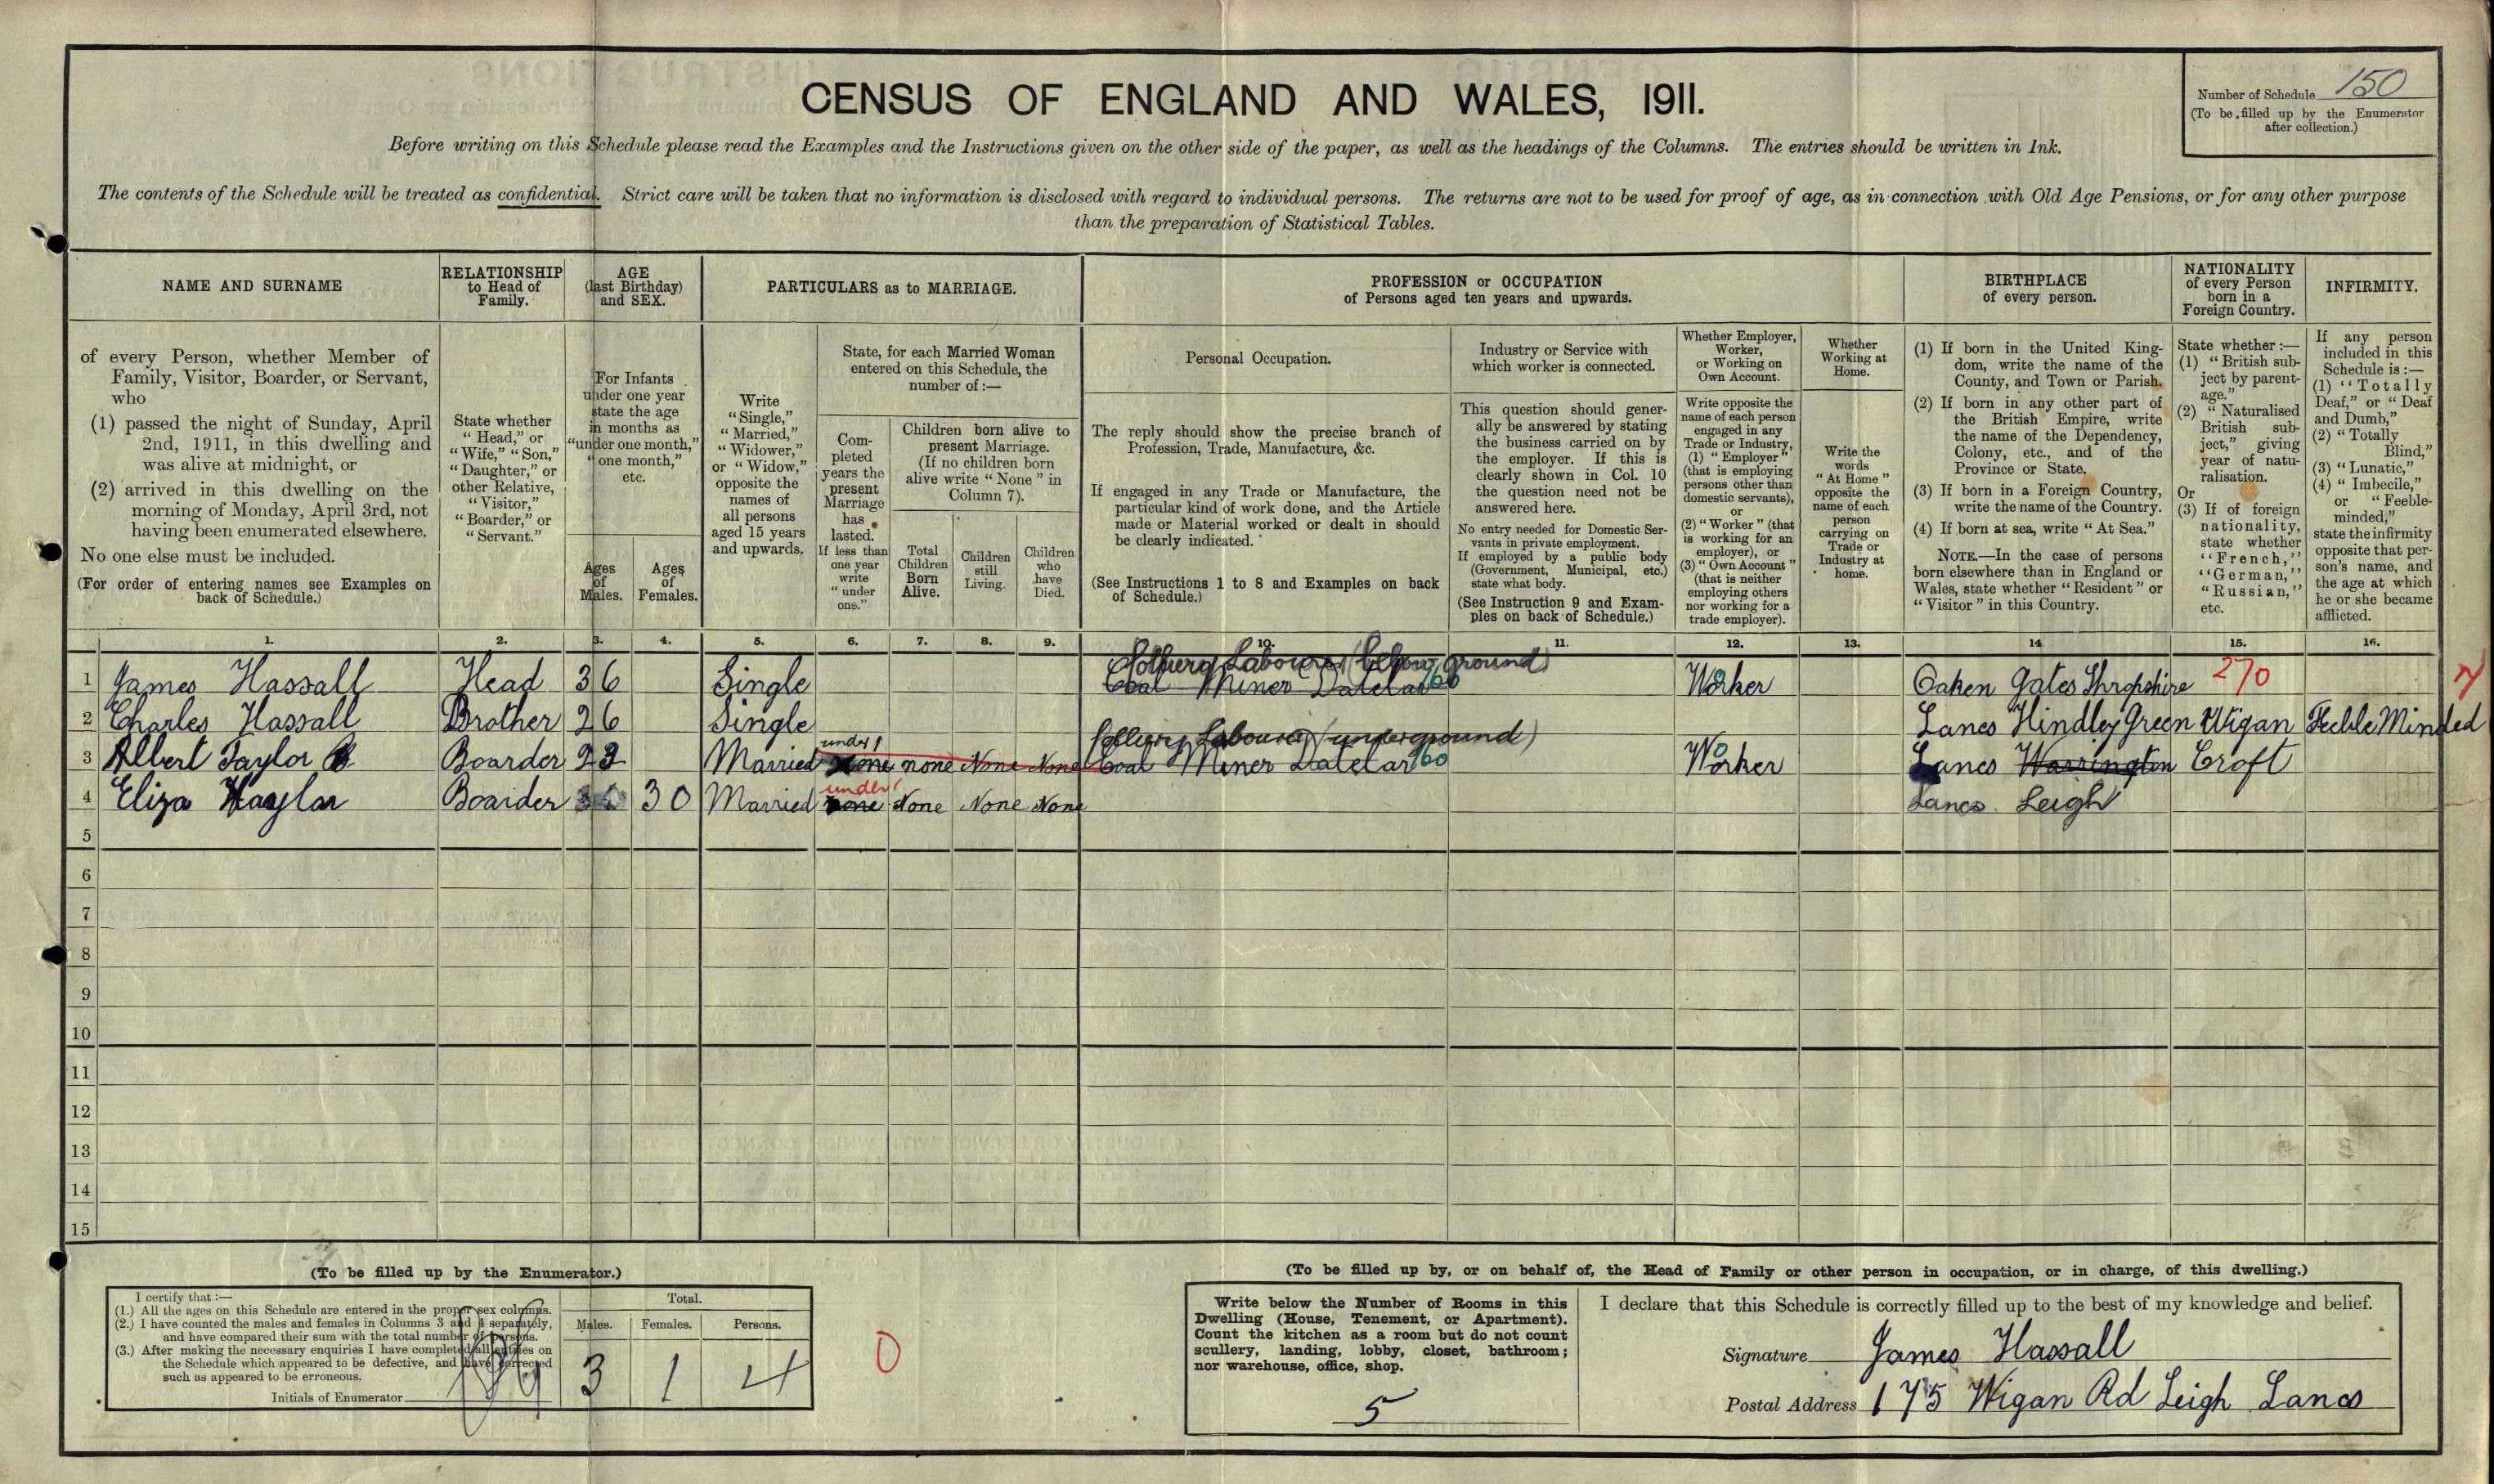 CENSUS OF ENGLAND AND WALES, 1911.
Number of Schedule 150
(To be filled up by the Enumerator
after collection.)
Before writing on this Schedule please read the Examples and the Instructions given on the other side of the paper, as well as the headings of the Columns. The entries should be written in Ink.
The contents of the Schedule will be treated as confidential. Strict care will be taken that no information is disclosed with regard to individual persons. The returns are not to be used for proof of age, as in connection with Old Age Pensions, or for any other purpose
than the preparation of Statistical Tables.
NAME AND SURNAME
of every Person, whether Member of
Family, Visitor, Boarder, or Servant,
who
(1) passed the night of Sunday, April
2nd, 1911, in this dwelling and
was alive at midnight, or
(2) arrived in this dwelling on the
morning of Monday, April 3rd, not
having been enumerated elsewhere.
No one else must be included.
(For order of entering names see Examples on
back of Schedule.)
RELATIONSHIP
to Head of
Family.
State whether
"Head," or
"Wife," "Son,"
"Daughter," or
other Relative,
"Visitor,"
"Boarder," or
"Servant."
AGE
(last Birthday)
and SEX.
For Infants
under one year
state the age
in months as
"under one month,"
"one month,"
etc.
Ages
of
Males.
Ages
of
Females.
PARTICULARS as to MARRIAGE.
Write
"Single,"
"Married,"
"Widower,"
or "Widow,"
opposite the
names of
all persons
aged 15 years
and upwards.
State, for each Married Woman
entered on this Schedule, the
number of:—
Com-
pleted
years the
present
Marriage
has
lasted.
If less than
one year
write
"under
one."
Children born alive to
present Marriage.
(If no children born
alive write "None" in
Column 7).
Total
Children
Born
Alive.
Children
still
Living.
Children
who
have
Died.
PROFESSION or OCCUPATION
of Persons aged ten years and upwards.
Personal Occupation.
The reply should show the precise branch of
Profession, Trade, Manufacture, &c.
If engaged in any Trade or Manufacture, the
particular kind of work done, and the Article
made or Material worked or dealt in should
be clearly indicated.
(See Instructions 1 to 8 and Examples on back
of Schedule.)
Industry or Service with
which worker is connected.
This question should gener-
ally be answered by stating
the business carried on by
the employer. If this is
clearly shown in Col. 10
the question need not be
answered here.
No entry needed for Domestic Ser-
vants in private employment.
If employed by a public body
(Government, Municipal, etc.)
state what body.
(See Instruction 9 and Exam-
ples on back of Schedule.)
Whether Employer,
Worker,
or Working on
Own Account.
Write opposite the
name of each person
engaged in any
Trade or Industry,
(1) "Employer"
(that is employing
persons other than
domestic servants),
or
(2) "Worker" (that
is working for an
employer), or
(3) "Own Account"
(that is neither
employing others
nor working for a
trade employer).
Whether
Working at
Home.
Write the
words
"At Home"
opposite the
name of each
person
carrying on
Trade or
Industry at
home.
BIRTHPLACE
of every person.
(1) If born in the United King-
dom, write the name of the
County, and Town or Parish.
(2) If born in any other part of
the British Empire, write
the name of the Dependency,
Colony, etc., and of the
Province or State.
(3) If born in a Foreign Country,
write the name of the Country.
(4) If born at sea, write "At Sea."
NOTE.—In the case of persons
born elsewhere than in England or
Wales, state whether "Resident" or
"Visitor" in this Country.
NATIONALITY
of every Person
born in a
Foreign Country.
State whether :—
(1) "British sub-
ject by parent-
age."
(2) "Naturalised
British sub-
ject," giving
year of natu-
ralisation.
Or
(3) If of foreign
nationality,
state whether
"French,"
"German,"
"Russian,"
etc.
INFIRMITY.
If any person
included in this
Schedule is:—
(1) "Totally
Deaf," or "Deaf
and Dumb,"
(2) "Totally
Blind,"
(3) "Lunatic,"
(4) "Imbecile,"
or "Feeble-
minded,"
state the infirmity
opposite that per-
son's name, and
the age at which
he or she became
afflicted.
1. 2. 3. 4. 5. 6. 7. 8. 9. 10. 11. 12. 13. 14. 15. 16.
Colliery Labourer (below ground)
1 James Hassall Head 36 Single Coal Miner Datelar 160 Worker Oaken Gates Shropshire 270
2 Charles Hassall Brother 26 Single Lancs Hindley Green Wigan Feeble Minded
under 1 Colliery Labourer (underground)
3 Albert Taylor Boarder 22 Married none none None None Coal Miner Datelar 160 Worker Lancs Warrington Croft
under 1
4 Eliza Taylor Boarder 30 Married none None None None Lancs. Leigh
5
6
7
8
9
10
11
12
13
14
15
(To be filled up by the Enumerator.)
I certify that:—
(1.) All the ages on this Schedule are entered in the proper sex columns.
(2.) I have counted the males and females in Columns 3 and 4 separately,
and have compared their sum with the total number of persons.
(3.) After making the necessary enquiries I have completed all entries on
the Schedule which appeared to be defective, and have corrected
such as appeared to be erroneous.
Initials of Enumerator
Total.
Males. Females. Persons.
3 1 4
0
(To be filled up by, or on behalf of, the Head of Family or other person in occupation, or in charge, of this dwelling.)
Write below the Number of Rooms in this
Dwelling (House, Tenement, or Apartment).
Count the kitchen as a room but do not count
scullery, landing, lobby, closet, bathroom;
nor warehouse, office, shop.
5
I declare that this Schedule is correctly filled up to the best of my knowledge and belief.
Signature James Hassall
Postal Address 175 Wigan Rd Leigh Lancs